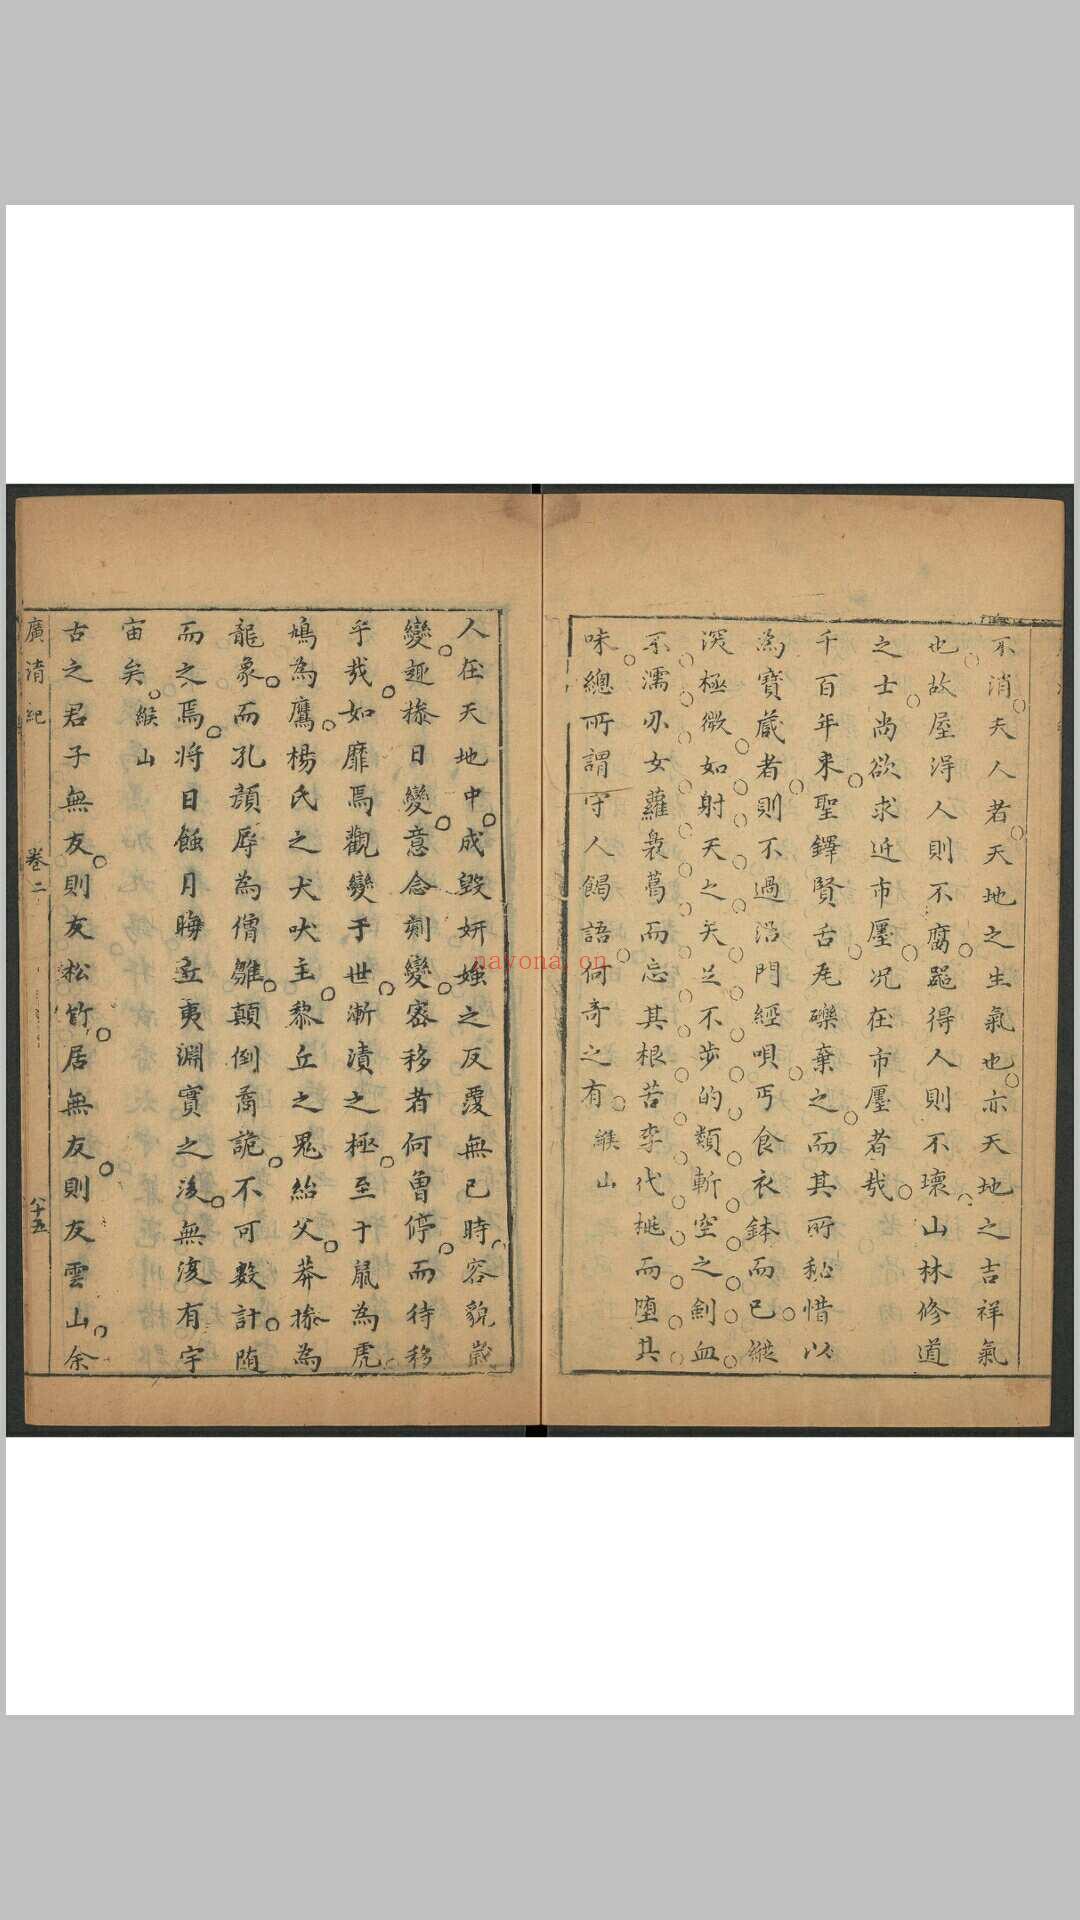 不消夫人者天地之生氣也亦天地之吉祥氣
也故屋得人則不腐器得人則不壞山林修道
之士尚欲求近市廛况在市廛者哉
千百年来聖鐸賢舌瓦礫棄之而其所秘惜以
為寶藏者則不過沿門經唄丐食衣鉢而已縱
深極微如射天之矢足不步的類斬空之劍血
不濡刃女蘿裊蔦而忘其根苦李代桃而墮其
味總所謂守人餲語何奇之有 緱山
人在天地中成毀妍媸之反覆無已時容貌歲
變趣捺日變意念刻變密移者何曾停而待移
乎哉如靡焉觀變于世漸漬之極至于鼠為虎
鳩為鷹楊氏之犬吠主黎丘之鬼紿父莽捺為
龍象而孔顏辱為僧雛顛倒喬詭不可數計随
而之焉將日蝕月晦丘夷淵實之後無復有宇
宙矣 緱山
古之君子無友則友松竹居無友則友雲山余
廣清紀 卷二 八十五
nayona.cn